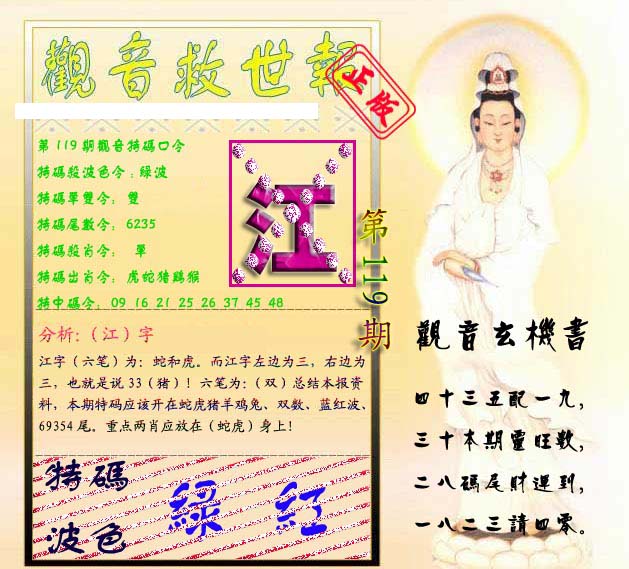 觀音救世報
正版
第119期觀音特碼口令
特碼殺波色令:綠波
特碼單雙令: 雙
特碼尾數令: 6235
特碼殺肖令: 單
特碼出肖令: 虎蛇猪鷄猴
特中碼令: 09 16 21 25 26 37 45 48
江
第119期
分析:(江)字
江字(六笔)为:蛇和虎。而江字左边为三,右边为
三,也就是说33(猪)!六笔为:(双)总结本报资
料,本期特码应该开在蛇虎猪羊鸡兔、双数、蓝红波、
69354尾。重点两肖应放在(蛇虎)身上!
特碼
波色
綠 紅
觀音玄機書
四十三五配一九,
三十本期靈旺數,
二八碼尾財運到,
一八二三請四零。